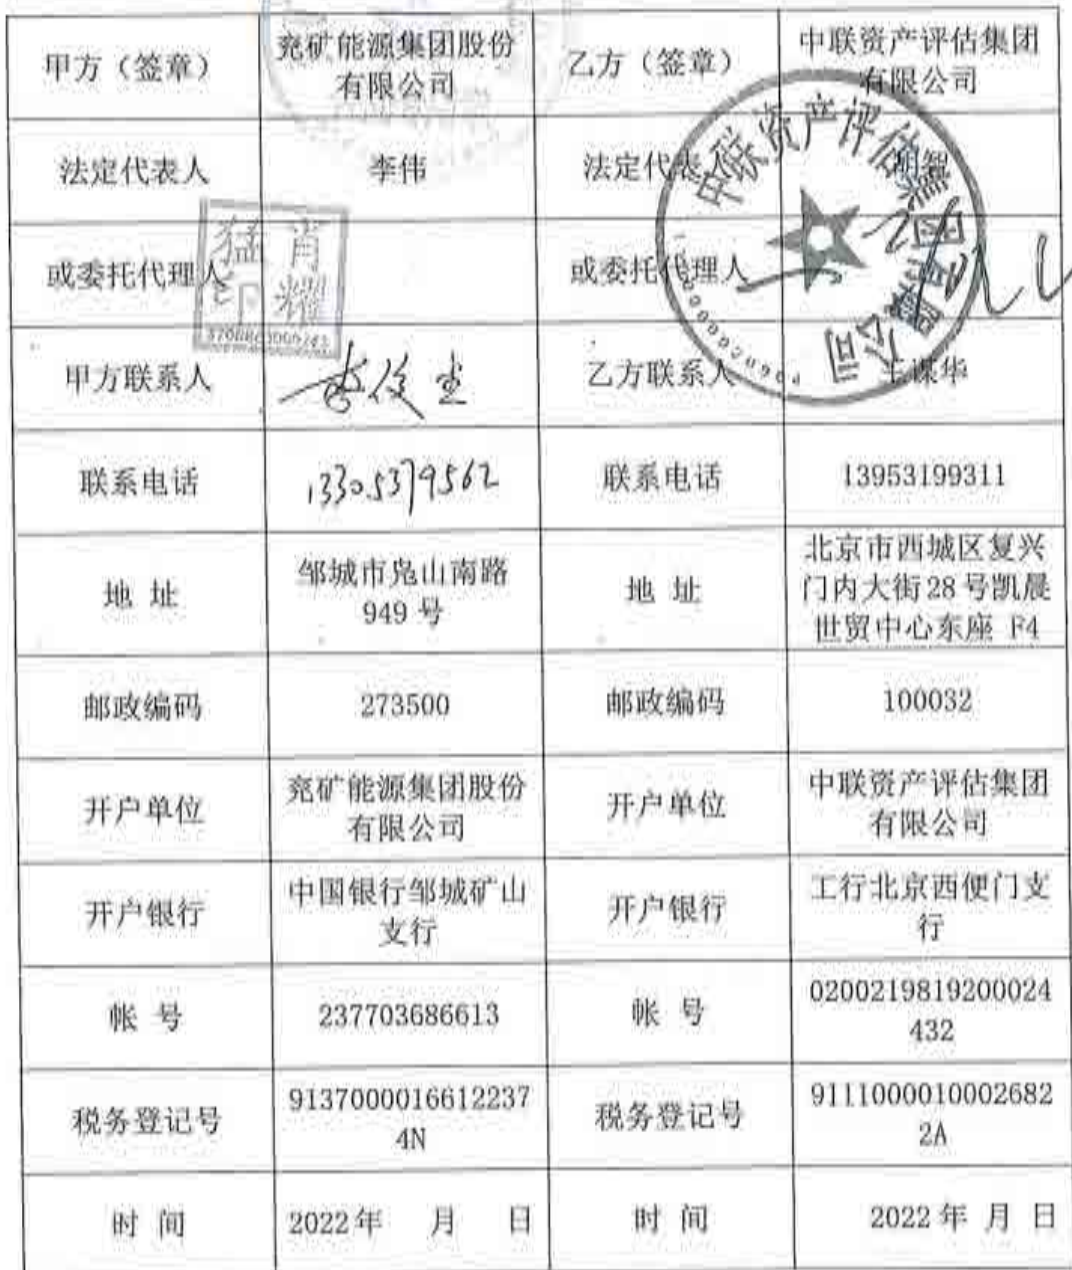 甲方（签章） 兖矿能源集团股份 乙方（签章） 中联资产评估集团
有限公司 有限公司
法定代表人 李伟 法定代表人 胡智
肖耀
猛印
或委托代理人 或委托代理人
中联资产评估集团有限公司
甲方联系人 乙方联系人 王谋华
联系电话 13305379562 联系电话 13953199311
地 址 邹城市凫山南路 地 址 北京市西城区复兴
949 号 门内大街28号凯晨
世贸中心东座 F4
邮政编码 273500 邮政编码 100032
开户单位 兖矿能源集团股份 开户单位 中联资产评估集团
有限公司 有限公司
开户银行 中国银行邹城矿山 开户银行 工行北京西便门支
支行 行
帐 号 237703686613 帐 号 0200219819200024
432
税务登记号 9137000016612237 税务登记号 9111000010002682
4N 2A
时 间 2022年 月 日 时 间 2022年 月 日